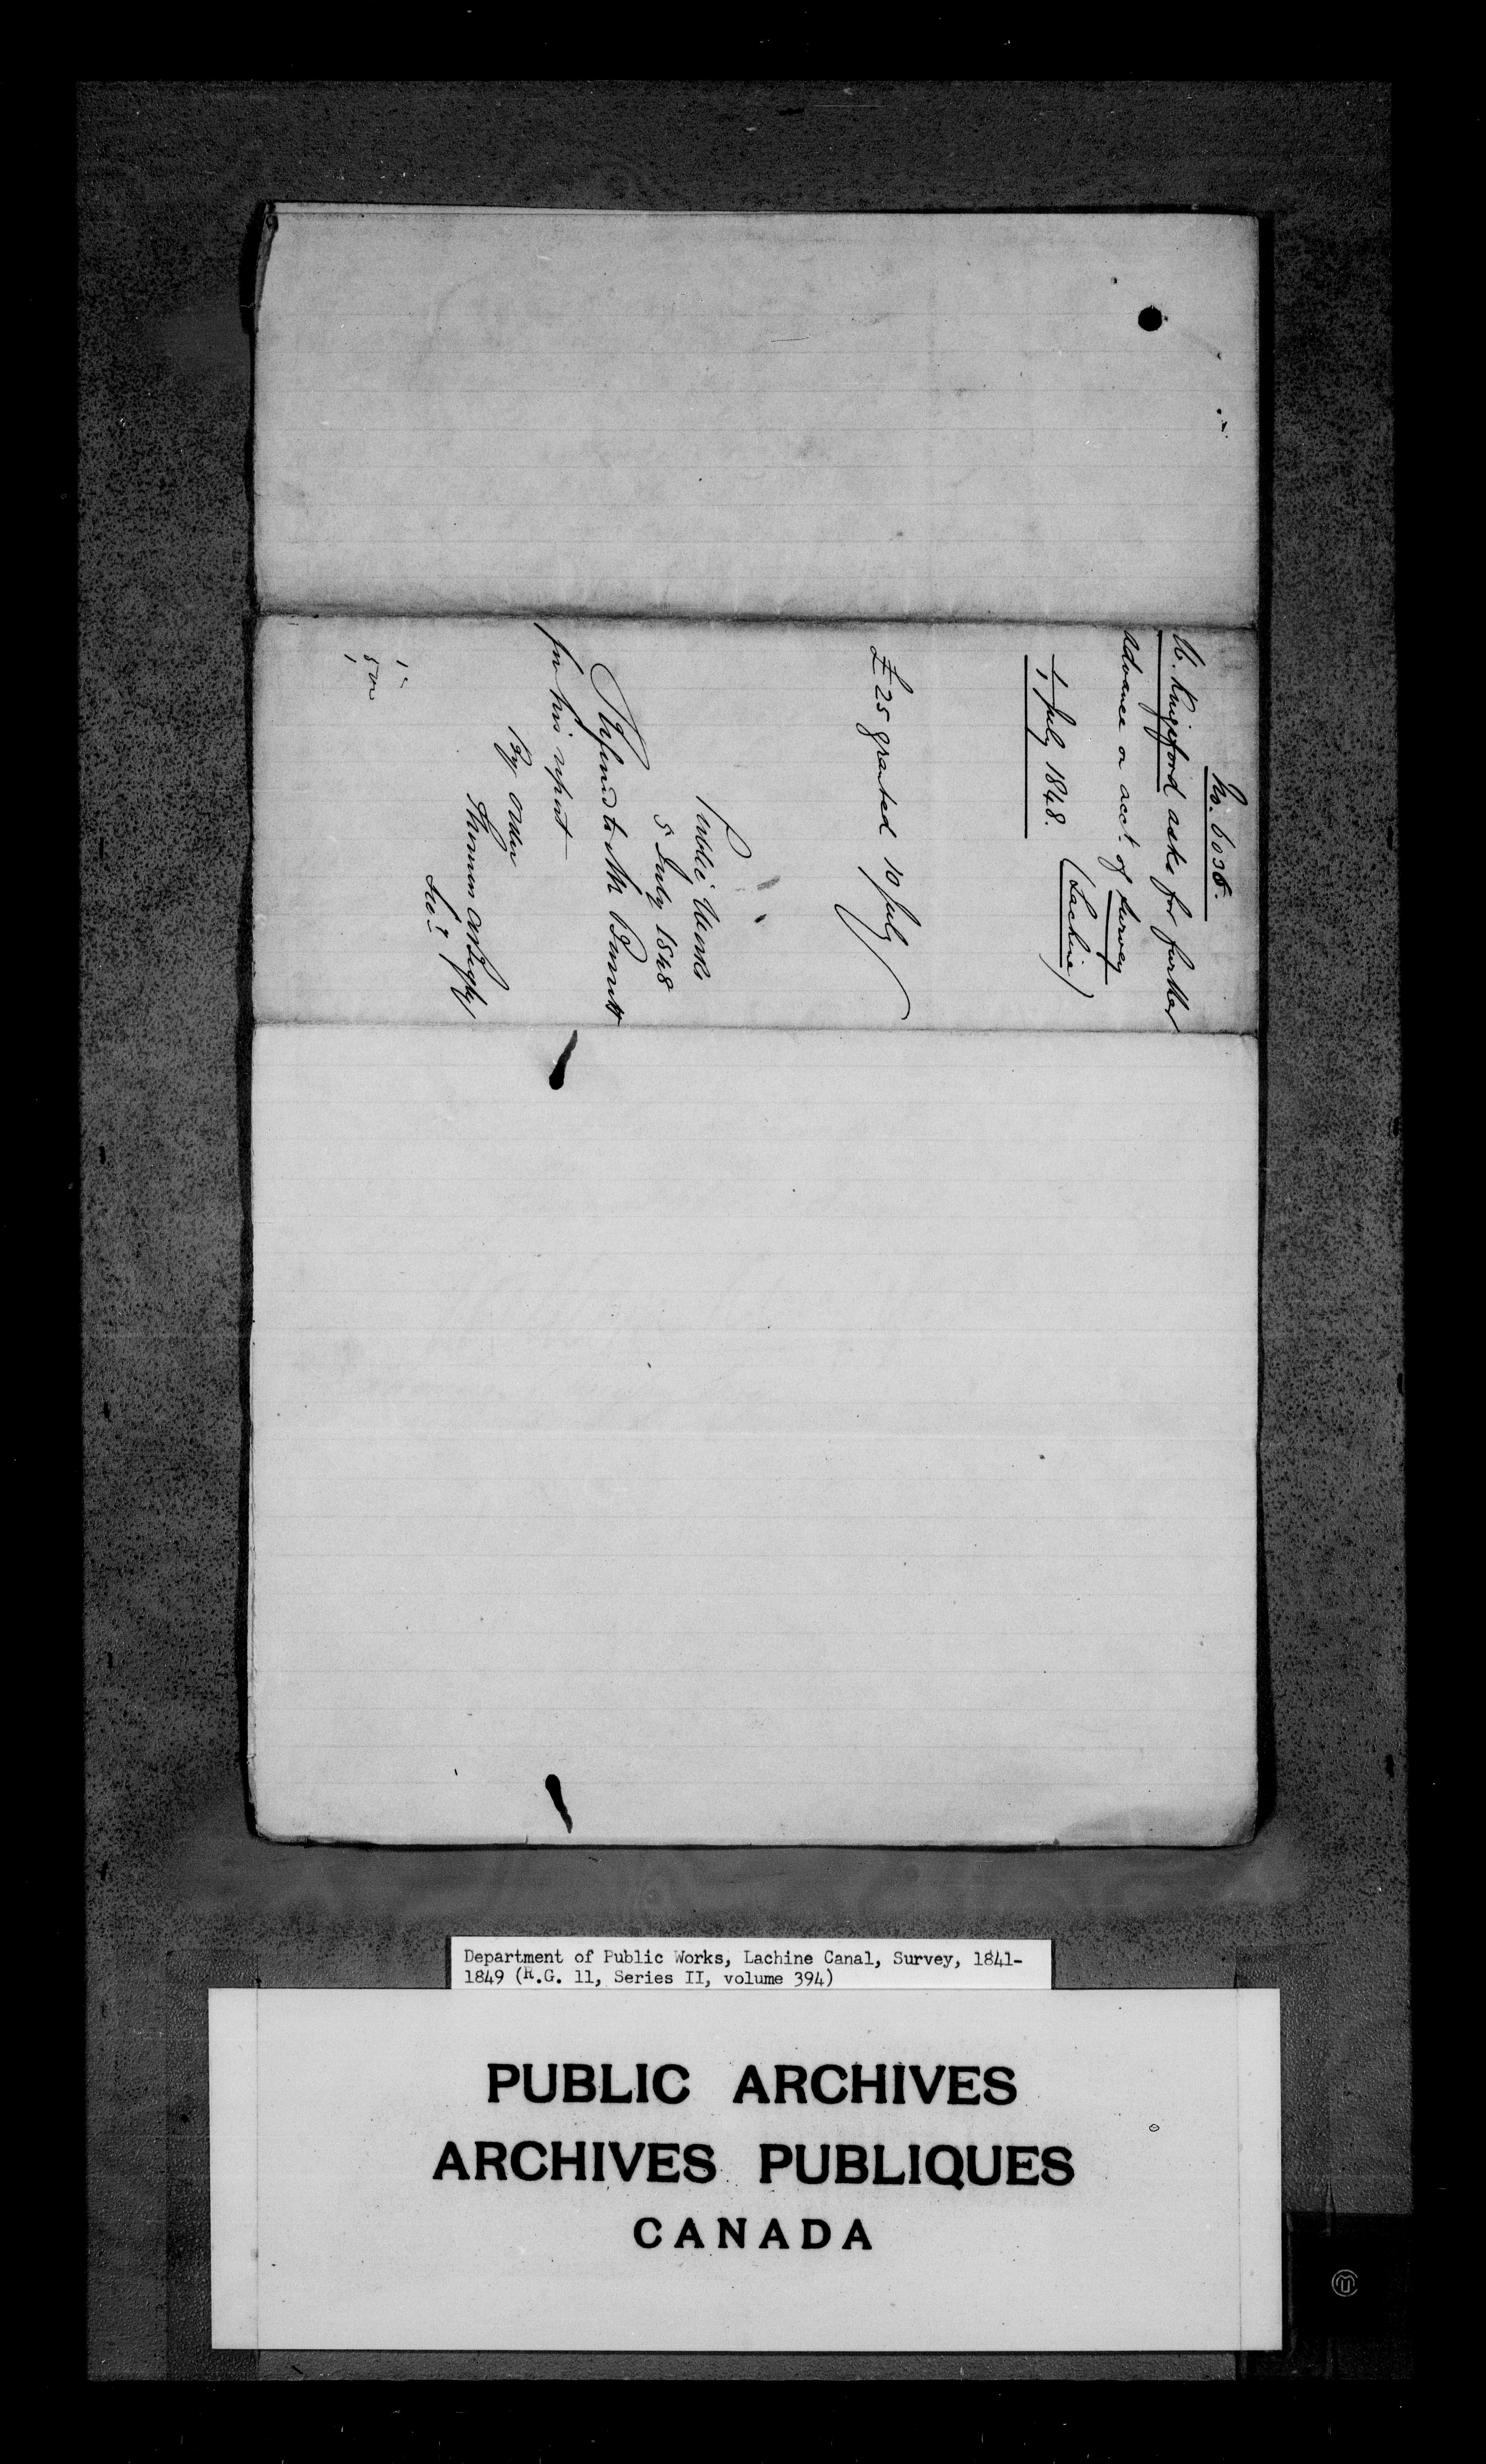 No. 6036.
W. Kingsford asks for further
advance on acct. of survey
(Lachine)
1, July 1848.
£25 granted 10 July
Public Works
5 July 1848
Referred to Mr Barrett
for his report
By order
Thomas A Begly
Secy
Department of Public Works, Lachine Canal, Survey, 1841-
1849 (R.G. 11, Series II, volume 394)
PUBLIC ARCHIVES
ARCHIVES PUBLIQUES
CANADA